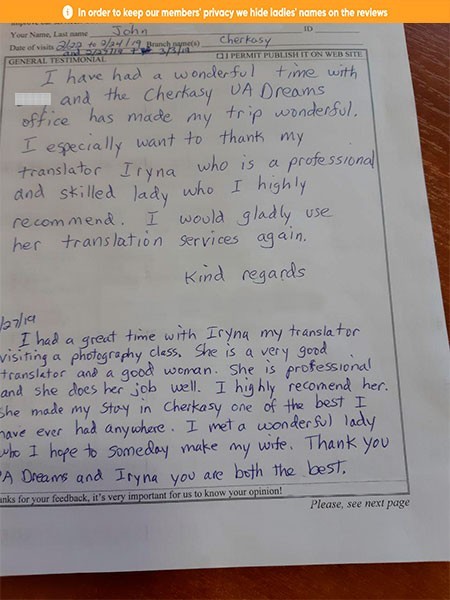 In order to keep our members' privacy we hide ladies' names on the reviews
Your Name, Last name John ID
Date of visits 2/22 to 2/24/19 Branch name(s) Cherkasy
and 2/27/19 3/3/19
GENERAL TESTIMONIAL I PERMIT PUBLISH IT ON WEB SITE
I have had a wonderful time with
and the Cherkasy UA Dreams
office has made my trip wonderful.
I especially want to thank my
translator Iryna who is a professional
and skilled lady who I highly
recommend. I would gladly use
her translation services again.
Kind regards
/27/19
I had a great time with Iryna my translator
visiting a photography class. She is a very good
translator and a good woman. She is professional
and she does her job well. I highly recomend her.
She made my stay in Cherkasy one of the best I
have ever had anywhere. I met a wonderful lady
who I hope to someday make my wife. Thank you
UA Dreams and Iryna you are both the best.
anks for your feedback, it's very important for us to know your opinion!
Please, see next page